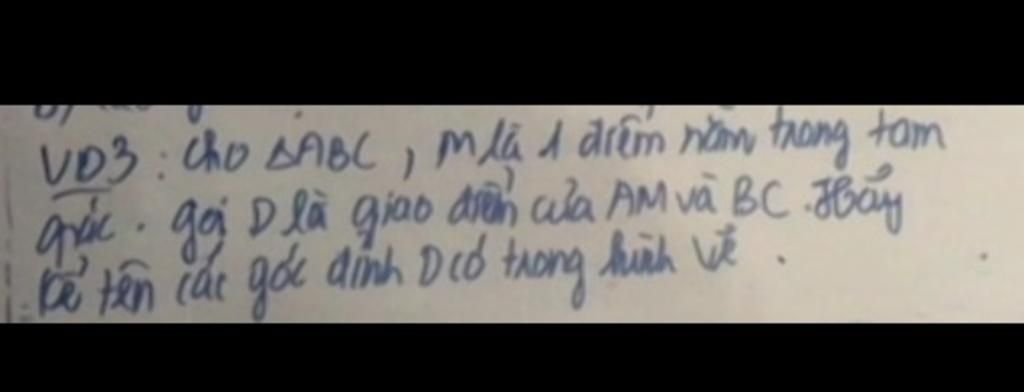 VD3: Cho ΔABC, M là 1 điểm nằm trong tam
giác. gọi D là giao điểm của AM và BC. Hãy
kể tên các góc đỉnh D có trong hình vẽ.